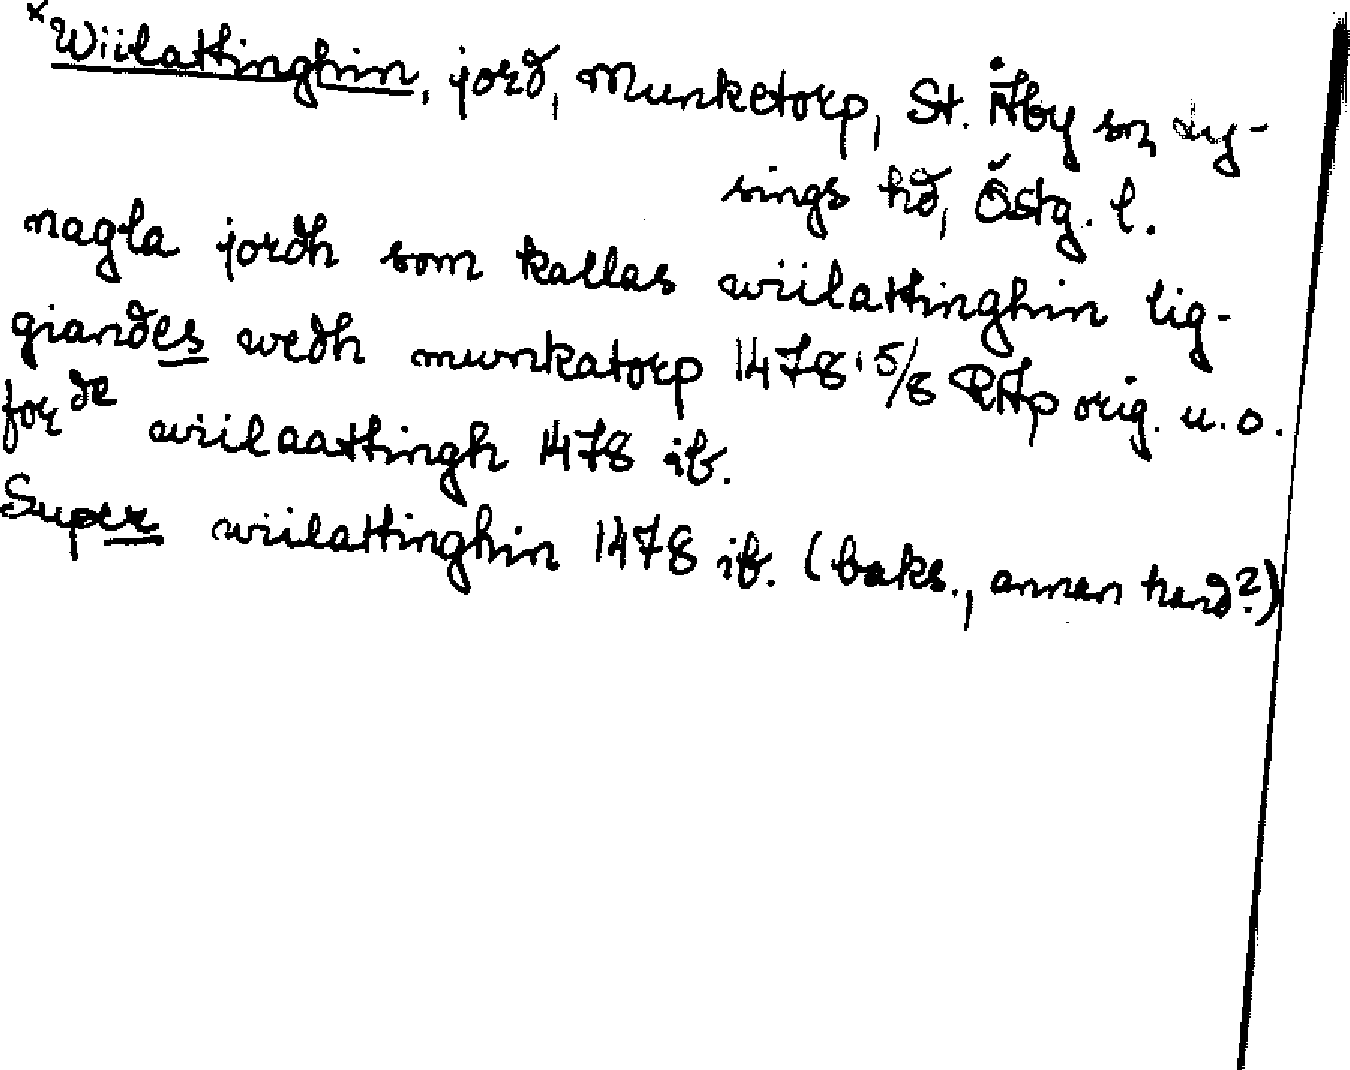 ×Wiilattinghin, jord, Munketorp, St. Åby sn, Ly-
sings hd, Östg. l.
nagla jordh som kallas wiilattinghin lig-
giandes wedh munkatorp 1478 15/8 RAp orig. u.o.
for de wiilaattingh 1478 ib.
Super wiilattinghin 1478 ib. (baks., annan hand?)